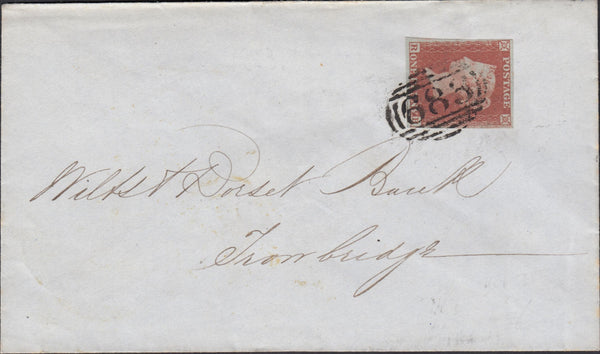 POSTAGE
683
Wilts & Dorset Bank
Trowbridge